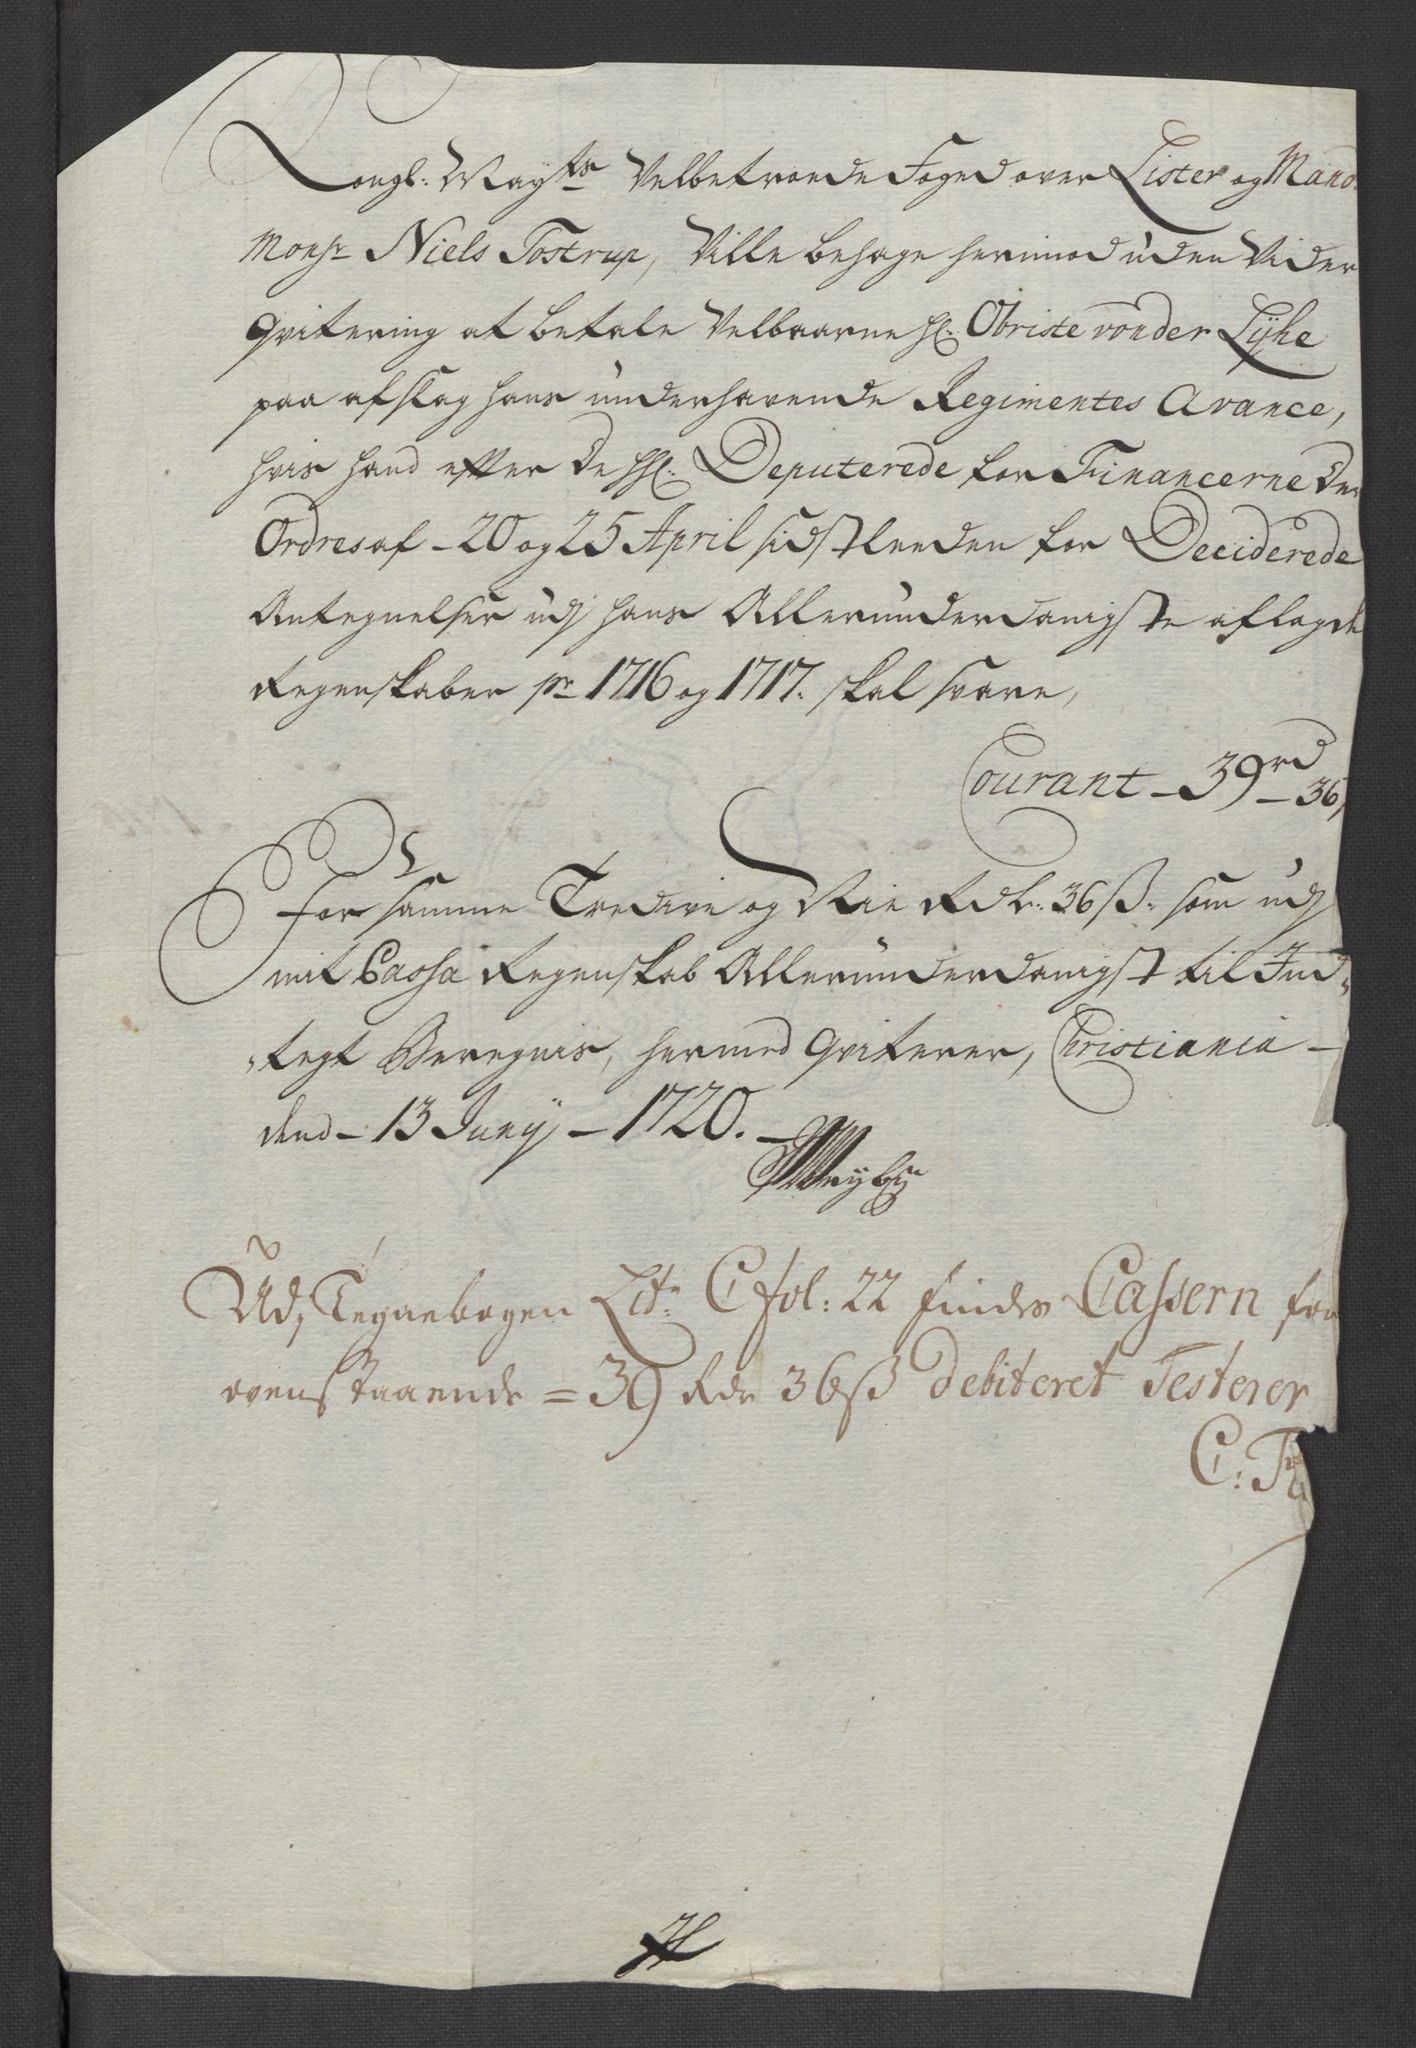 Kongl: May:ts Velbetroede Foged over Lister og Mand
Monsr Niels Tostrup, Ville behage herimod uden Vider
qvitering at betale Velbaarne Hr: Obriste von der Lÿhe
paa afslag hans underhavende Regimentes Avance,
hvis hand efter de HHr: Deputerede for Financerne Der
Ordres af - 20 og 25 April sidstleeden for Deciderede
Antegnelser udj hans Allerunderdanigste aflagde
Regenskaber pr 1716 og 1717. skal svare,
Courant - 39rd - 36
For samme Tredive og Nie Rdlr: 36 ß: som udj
mit Cassa Regenskab Allerunderdanigst til Ind„
„tegt Beregnis, hermed qviterer, Christiania -
dend - 13 Junij - 1720. -
Udj Tegnebogen Litr: C fol: 22 findes Cassern for
ovenstaaende = 39 Rdr 36 ß debiteret Testerer
C: